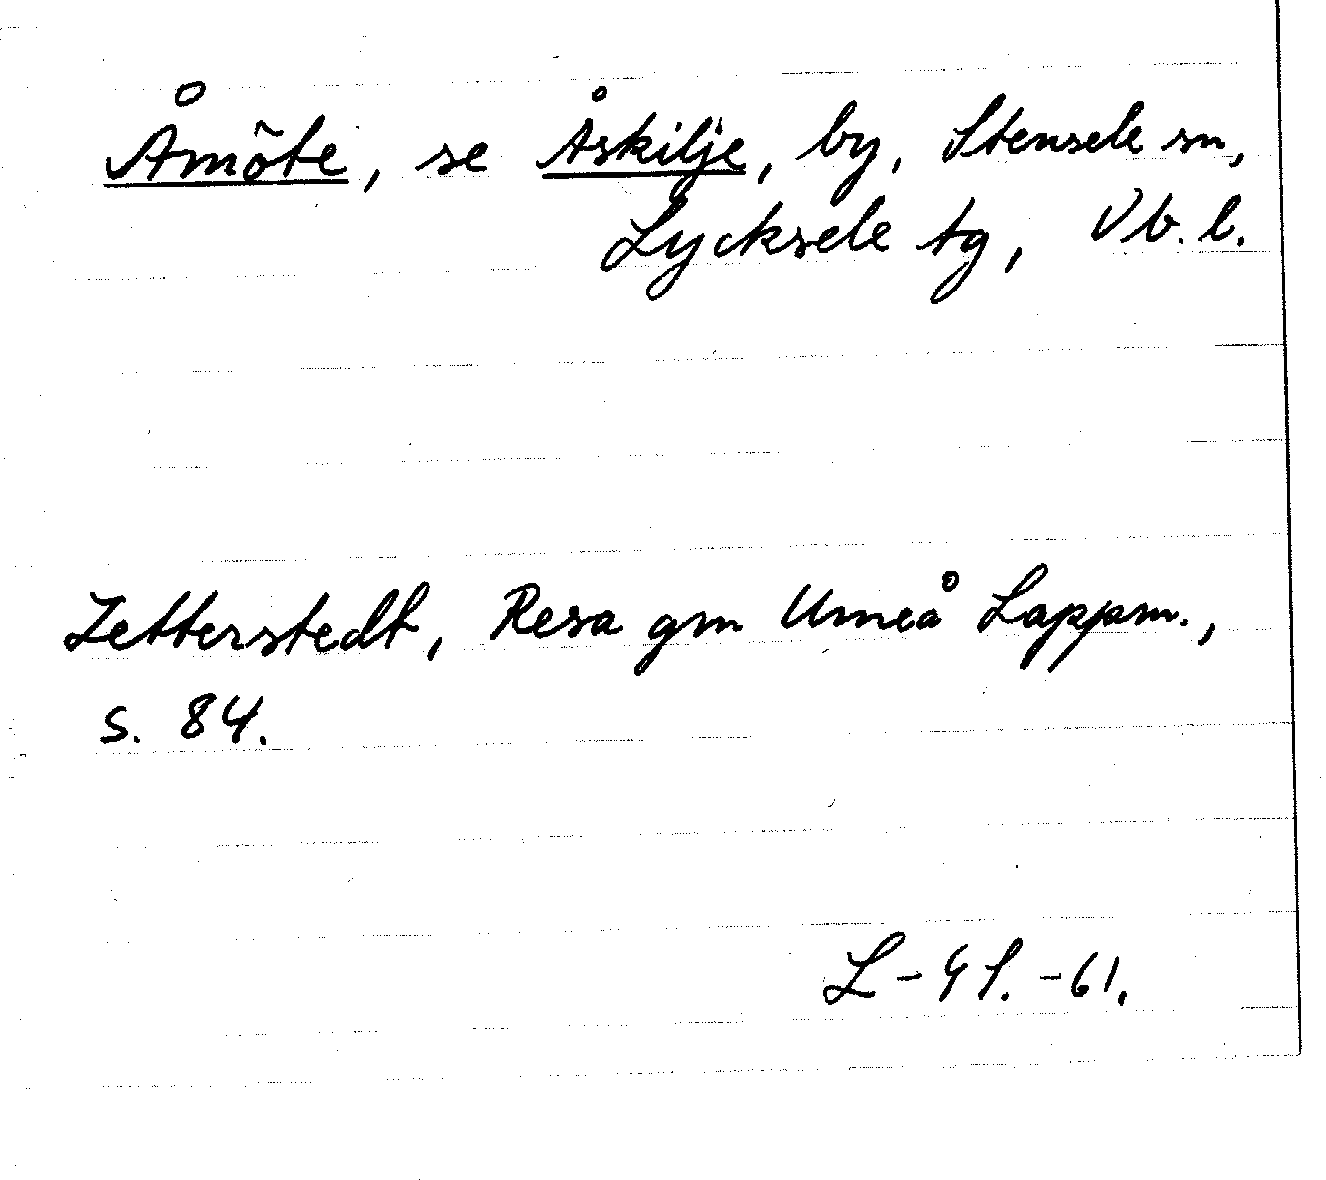 Åmöte, se Åskilje, by, Stensele sn,
Lycksele tg, Vb. l.
Zetterstedt, Resa gm Umeå Lappm.,
s. 84.
L-41. -61.